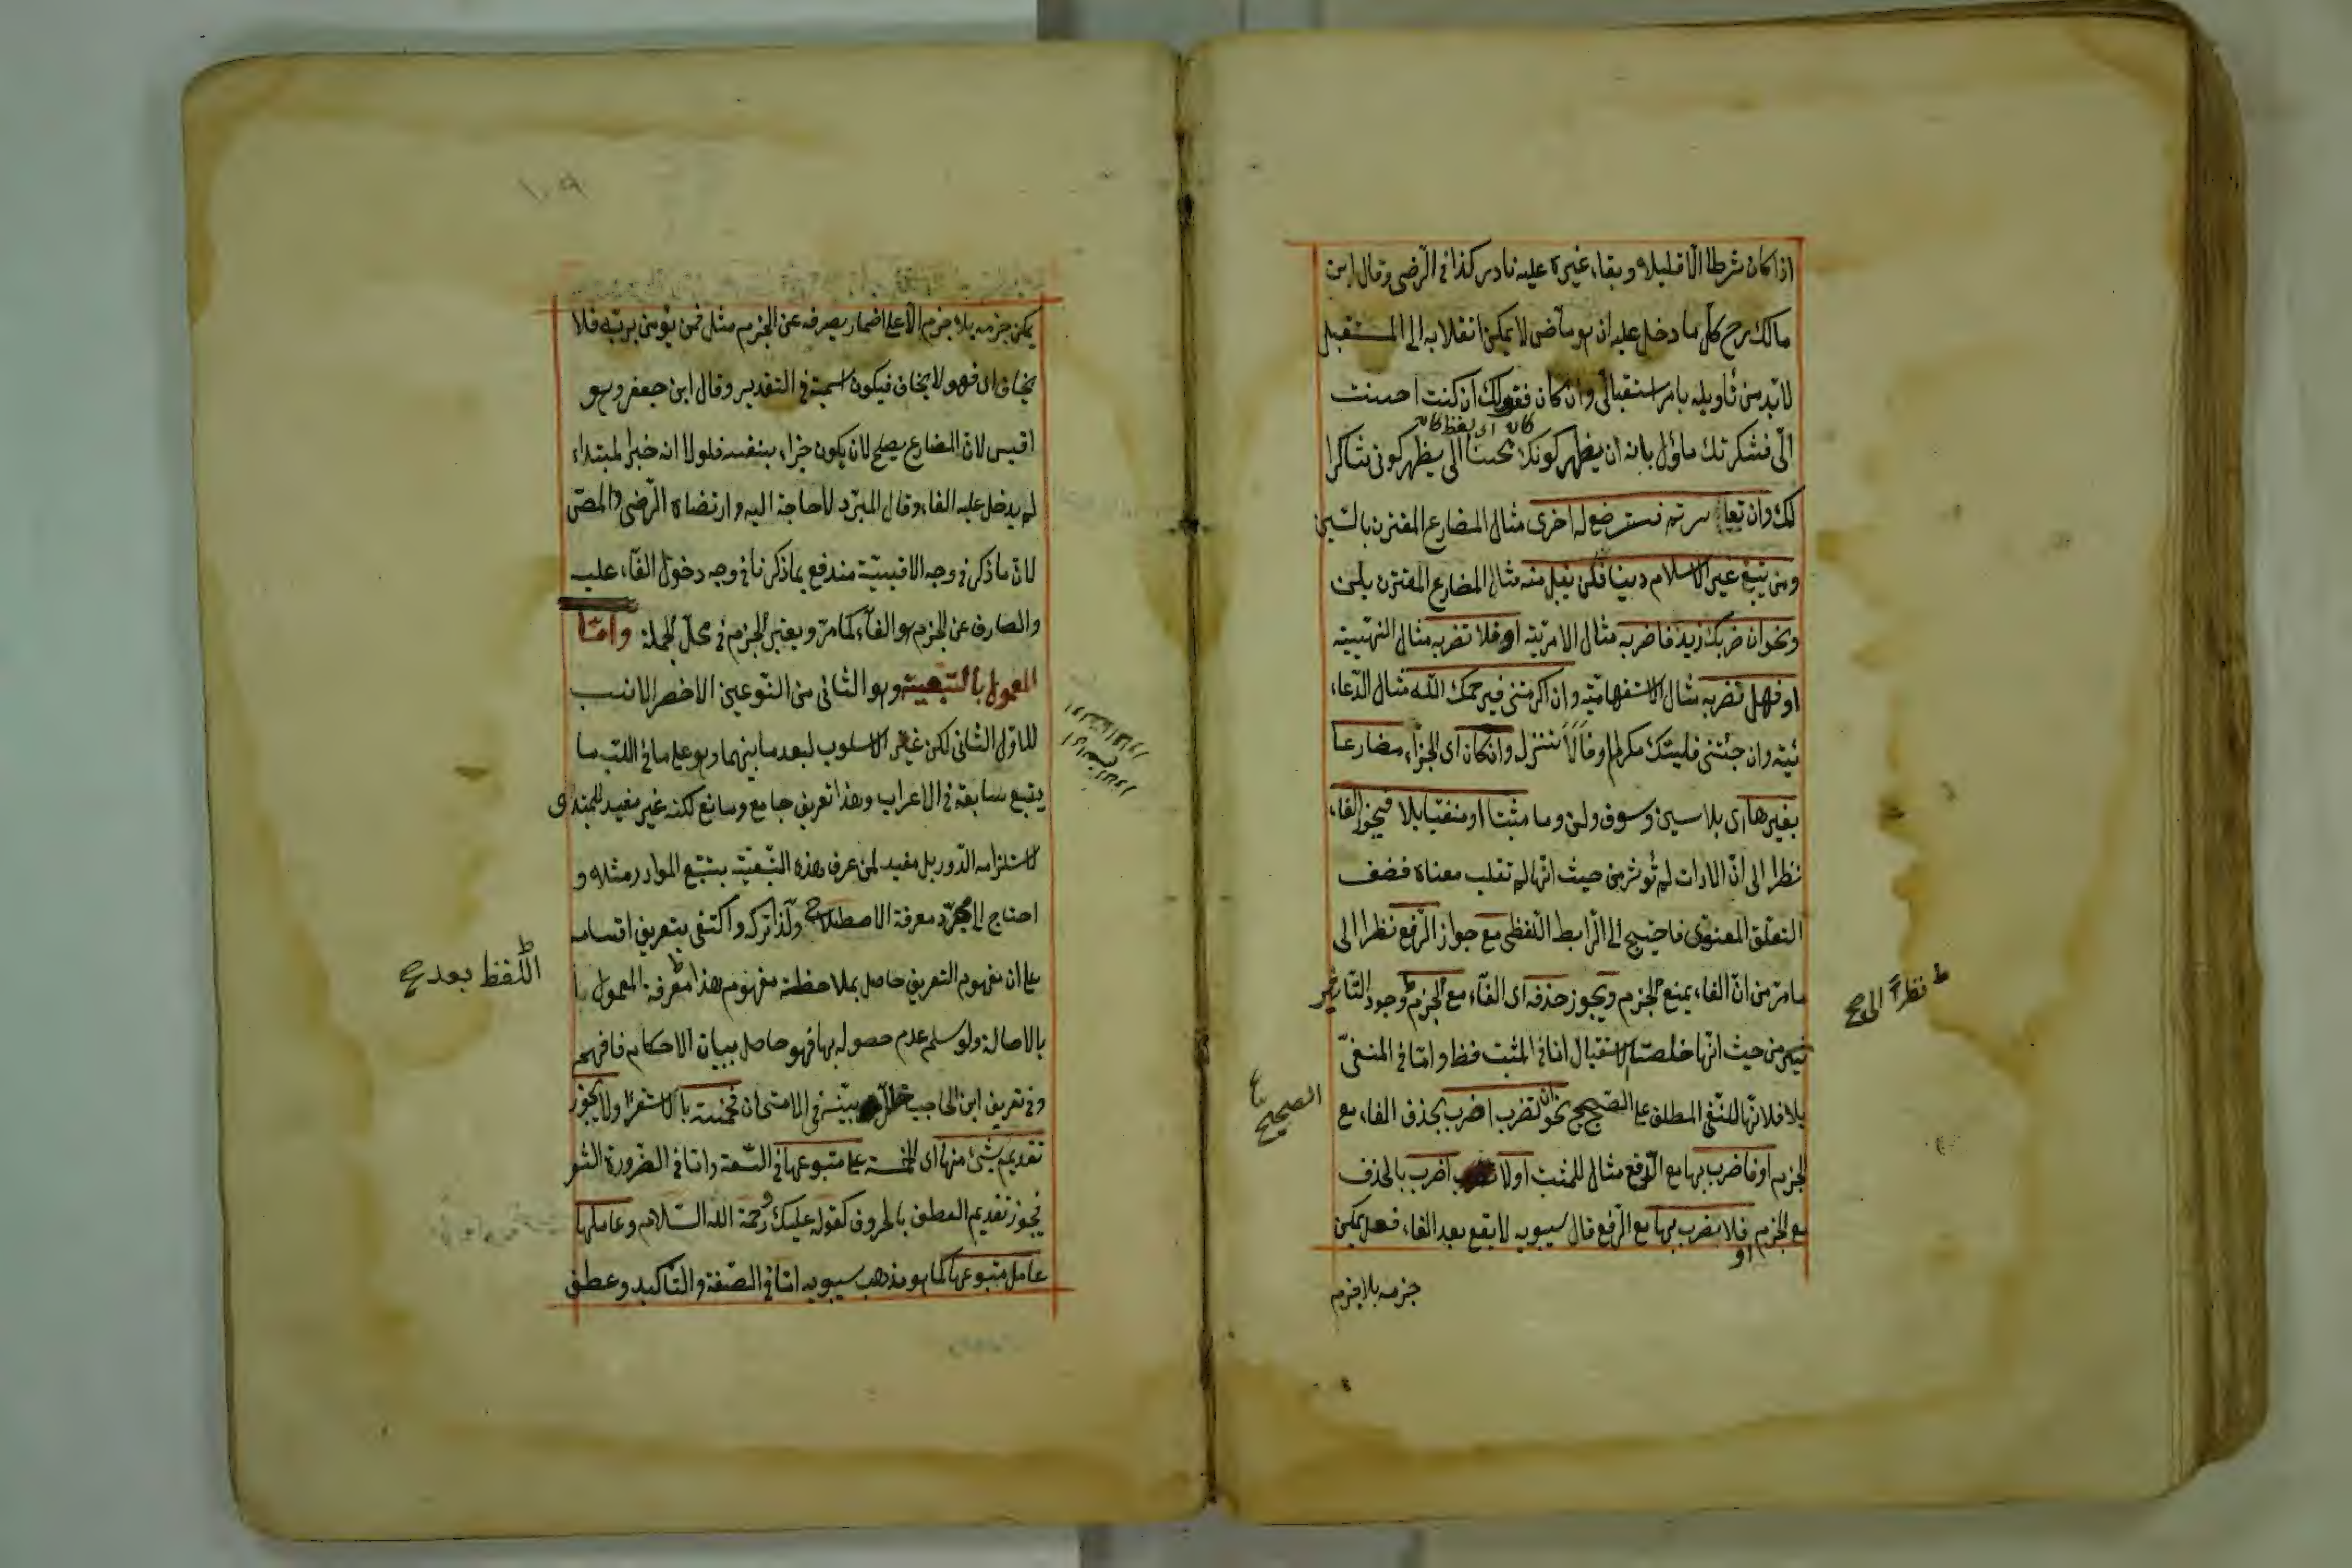 اذا كان شرطا الا قليلا وبقاء غيره عليه نادر كذا فى الرّضى وقال ابن
مالك رح كلّ ما دخل عليه ان وهو ماضى لا يمكن انقلابه الى المستقبل
لا بّد من تأويله بامر استقبالى وان كان فقولك ان كنت احسنت
كان اى لفظ كان
الّى فشكرتك مأوّل بانه ان يظهر كونك محسنا الى يظهر كونى شاكرا
لك وان تعاسرتم فسترضع له اخرى مثال المضارع المقترن بالسّين
ومن يبتغ غير الاسلام دينا فلن يقبل منه مثال المضارع المقترن بلن
ونحو ان ضربك زيد فاضربه مثال الامريّة او فلا تضربه مثال النهييّة
او فهل تضربه مثال الاستفهاميّة وان اكرمتنى فيرحمك اللّه مثال الدّعا
ئيّة وان جئتنى فليتك مكرم او فالا تنزل وان كان اى الجزاء مضارعا
بغيرها اى بلا سين وسوف ولن وما مثبتا او منفيّا بلا فيجوز الفاء
نظرا الى انّ الادات لم تؤثر من حيث انّها لم تقلب معناه فضعف
التعلّق المعنوى فاحتيج الى الرّابط اللّفظى مع جواز الرّفع نظرا الى
ما مرّ من انّ الفاء يمنع الجزم ويجوز حذفه اى الفاء مع الجزم وجود التّأ
ثير من حيث انّها خلصت الاستقبال امّا فى المثبت فظ وامّا فى المنفىّ
بلا فلانّها للنّفى المطلق على الصّحيح نحو ان تضرب اضرب بحذف الفاء مع
الجزم او فاضرب بها مع الرّفع مثال للمثبت او لا اضرب بالحذف
مع الجزم او فلا اضرب بها مع الرّفع قال سيبويه لا يقع بعد الفاء فعل يمكن
جزمه بلا جزم
نظراً الى صح
الصحيح
يمكن جزمه بلا جزم الّا على اضمار يصرفه عن الجزم مثل فمن يؤمن بربّه فلا
يخاف اى فهو لا يخاف فيكون اسميّة فى التقدير وقال ابن جعفر وهو
اقيس لانّ المضارع يصلح لان يكون جزاء بنفسه فلولا انه خبر لمبتداء
لم يدخل عليه الفاء وقال المبّرد لا حاجة اليه وارتضاه الّرضى والمصّ
لانّ ما ذكر فى وجه الاقيسيّة مندفع بما ذكرنا فى وجه دخول الفآء عليه
والصارف عن الجزم هو الفآء كما مرّ ويعتبر الجزم فى محلّ الجملة وامّا
المعمول بالتّبعيّة وهو الثانى من النّوعين الاخصر الانسب
للاوّل الثانى لكن غيّر الاسلوب لبعد ما بينهما وهو على ما فى اللبّ ما
يتبع سابقه فى الاعراب وهذا تعريف جامع ومانع لكنه غير مفيد للمبتدى
لاستلزامه الدّور بل مفيد لمن عرف هذه التّبعيّة بتتبّع الموارد مثلا و
احتاج الى مجرّد معرفة الاصطلاح ولذا تركه واكتفى بتعريف اقسامه
على ان مفهوم التعريف حاصل بملاحظة مفهوم هذا معرفة المعمول با
بالاصالة ولو سلم عدم حصوله بها فهو حاصل ببيان الاحكام فافهم
وفى تعريف ابن الحاجب بيّنته فى الامتحان فخمسة بالاستقراء ولا يجوز
تقديم شئ منها اى الخمسة على متبوعها فى السّعة وامّا فى الضّرورة الشعر
فيجوز تقديم العطف بالحروف كقوله عليك ورحمة اللّه السّلام وعاملها
عامل متبوعها كما هو مذهب سيبويه امّا فى الصّفة والتّأكيد وعطف
اللّفظ بعد صح